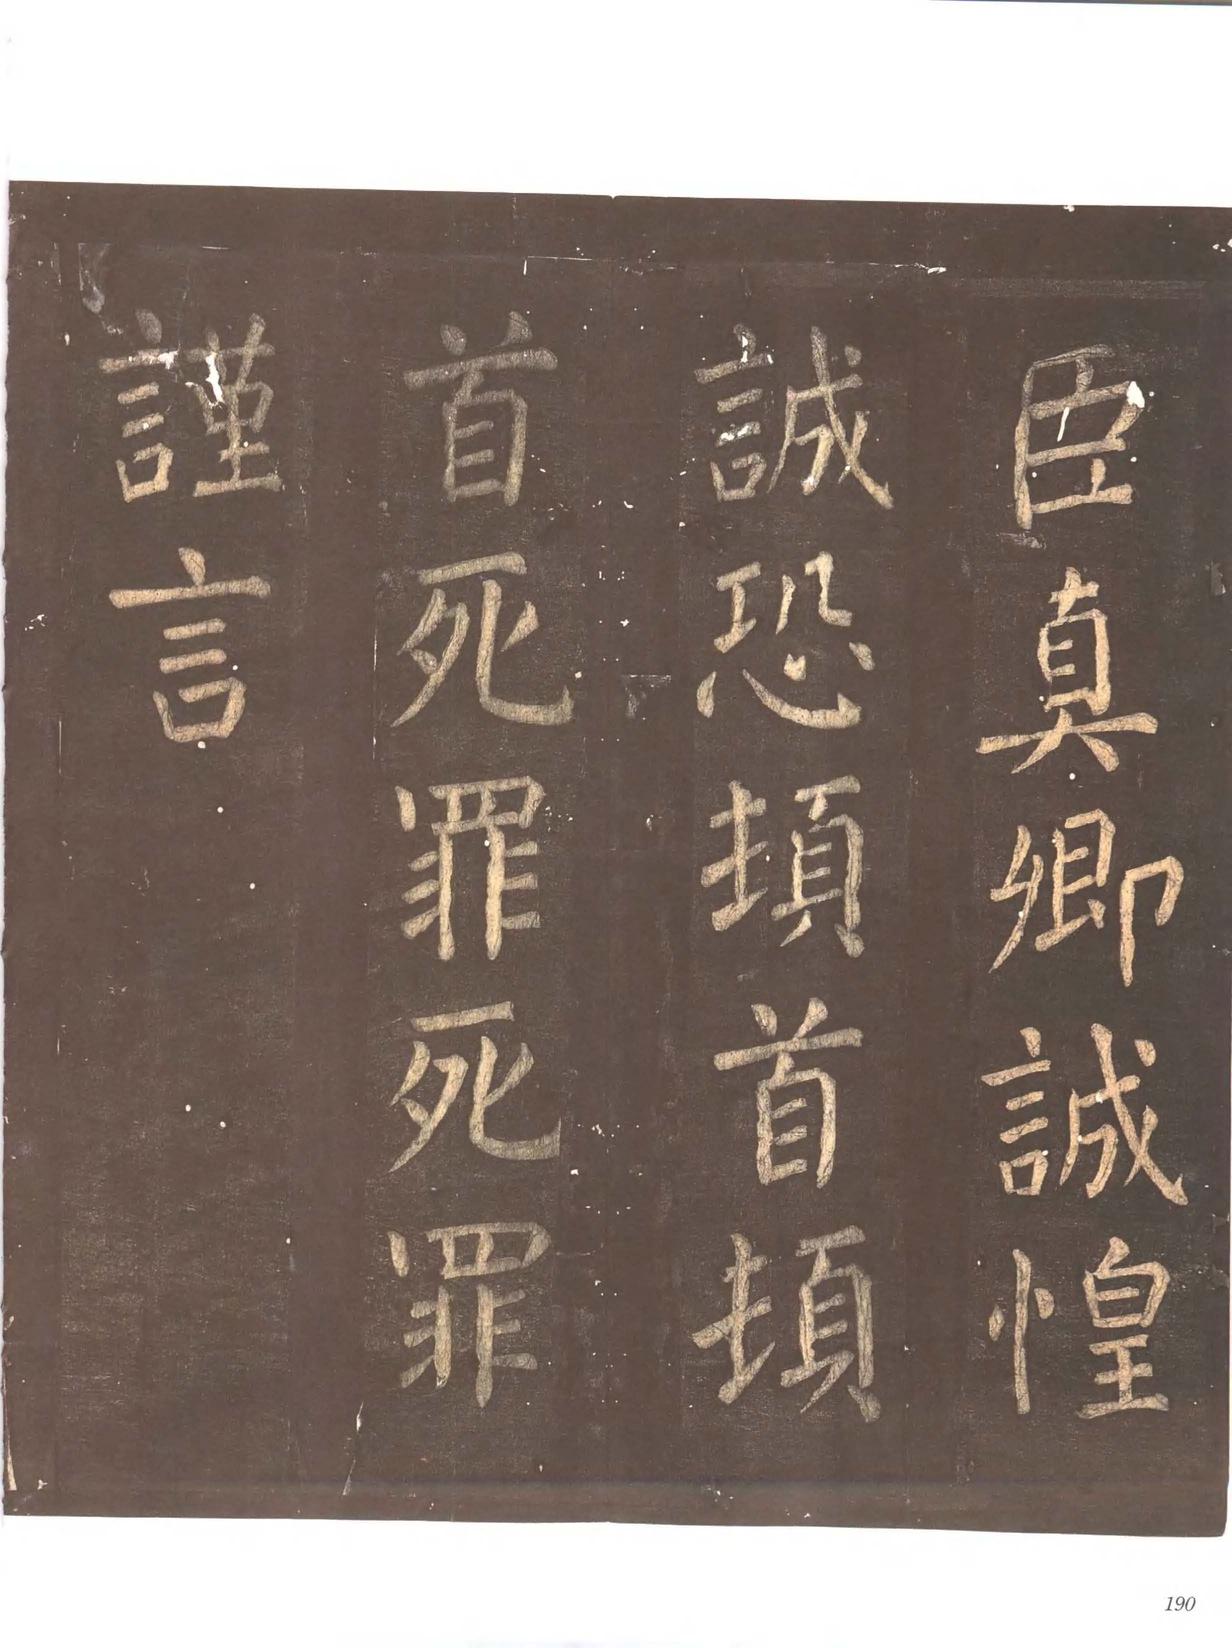 臣真卿誠惶
誠恐頓首頓
首死罪死罪
謹言
190